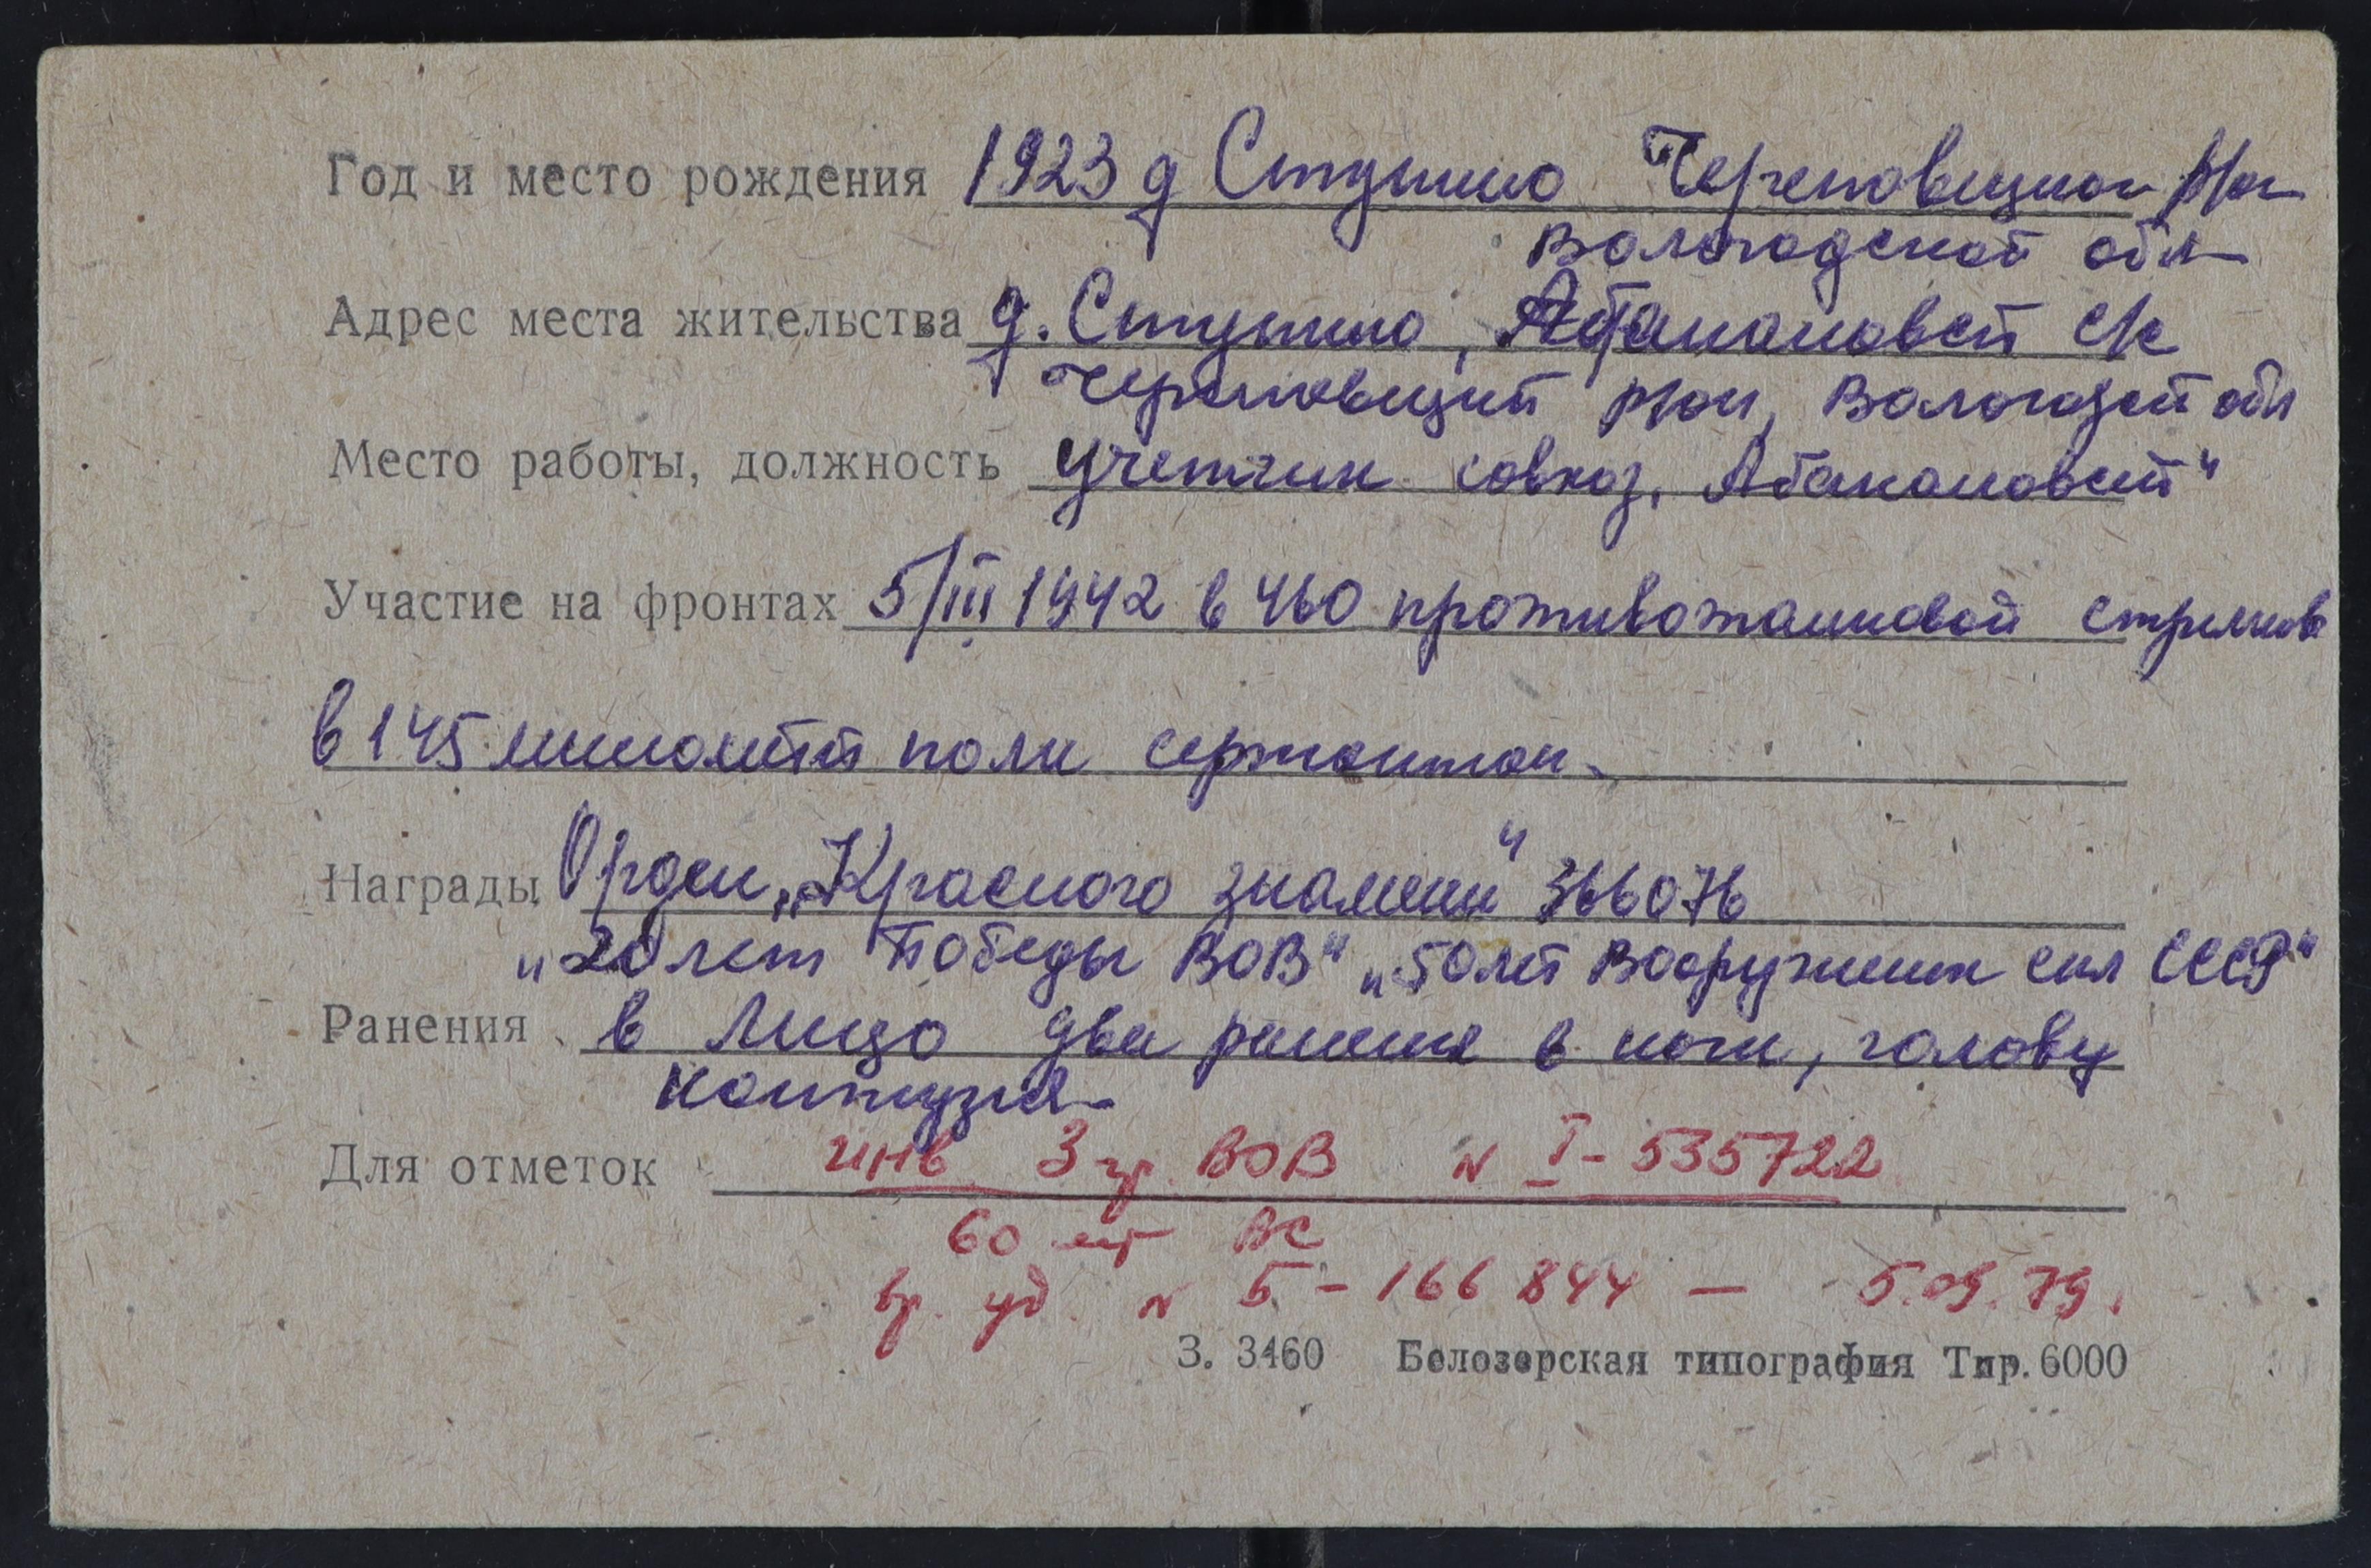 Год и место рождения 1923 д Ступино Череповецкой р/он
Вологодской обл
Адрес места жительства д. Ступино, Абакановский с/с
Череповецкий р/он, Вологодской обл
Место работы, должность учетчик совхоз „Абакановский"
Участие на фронтах 5/III 1942 в 460 противотанковой стрелков
в 145 минометный полк сержантом.
Награды Орден „Красного знамени" 366076
„20 лет Победы ВОВ" „50 лет Вооружен сил СССР"
Ранения в лицо два ранения в ноги, голову
контузия
Для отметок инв 3 гр. ВОВ № I-535722
60 лет ВС
вр. уд. № Б-166844 — 5.09.79.
З. 3460 Белозерская типография Тир. 6000